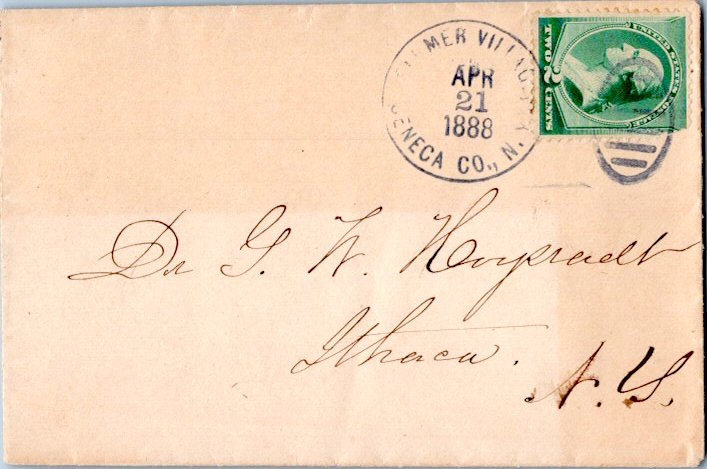 FARMER VILLAGE
APR
21
1888
SENECA CO., N.Y.
UNITED STATES POSTAGE
TWO 2 CENTS
Dr G. W. Hoysradt
Ithaca.
N. Y.